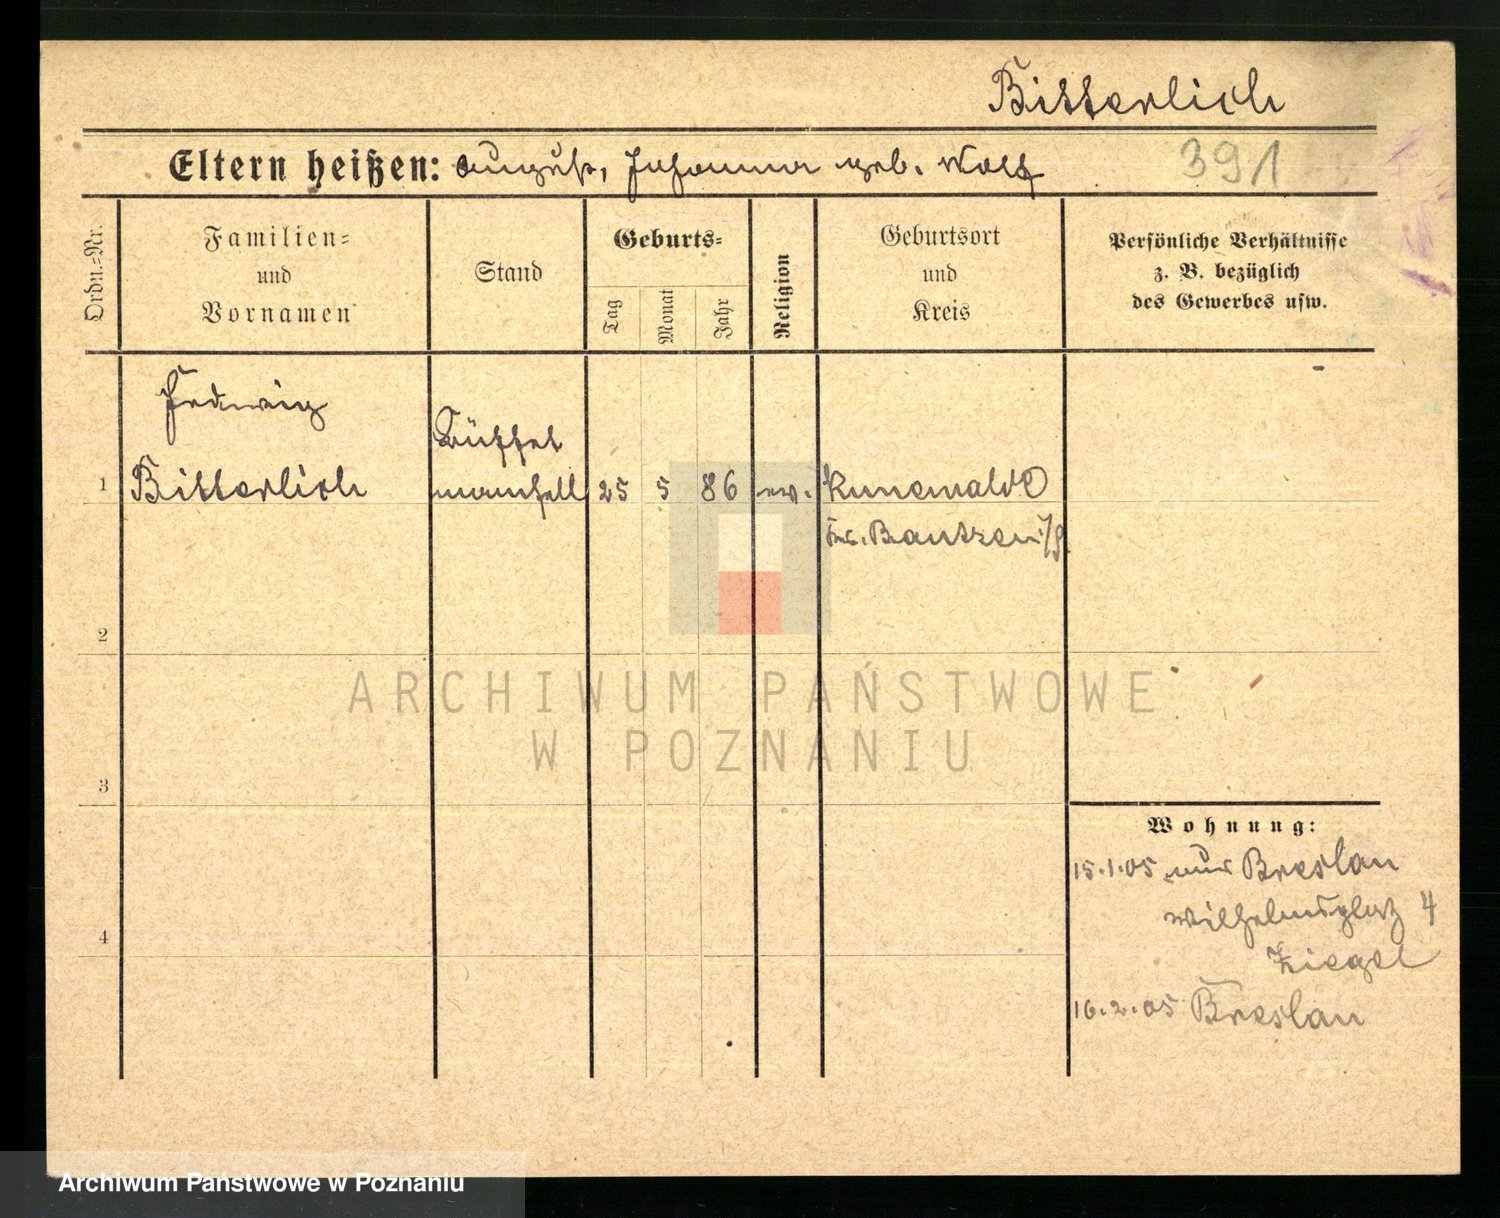 Bitterlich
Eltern heißen: August, Johanna geb. Wolf
391
Ordn.=Nr.
Familien=
und
Vornamen
Stand
Geburts=
Tag
Monat
Jahr
Religion
Geburtsort
und
Kreis
Persönliche Verhältnisse
z. B. bezüglich
des Gewerbes usw.
Hedwig
Büffet
1 Bitterlich mamsell 25 5 86 ev. Kunewalde
Kr. Bautzen i/S.
2
3
4
ARCHIWUM PAŃSTWOWE
W POZNANIU
Wohnung:
15.1.05 aus Breslau
Wilhelmsplatz 4
Ziegel
16.2.05 Breslau
Archiwum Państwowe w Poznaniu